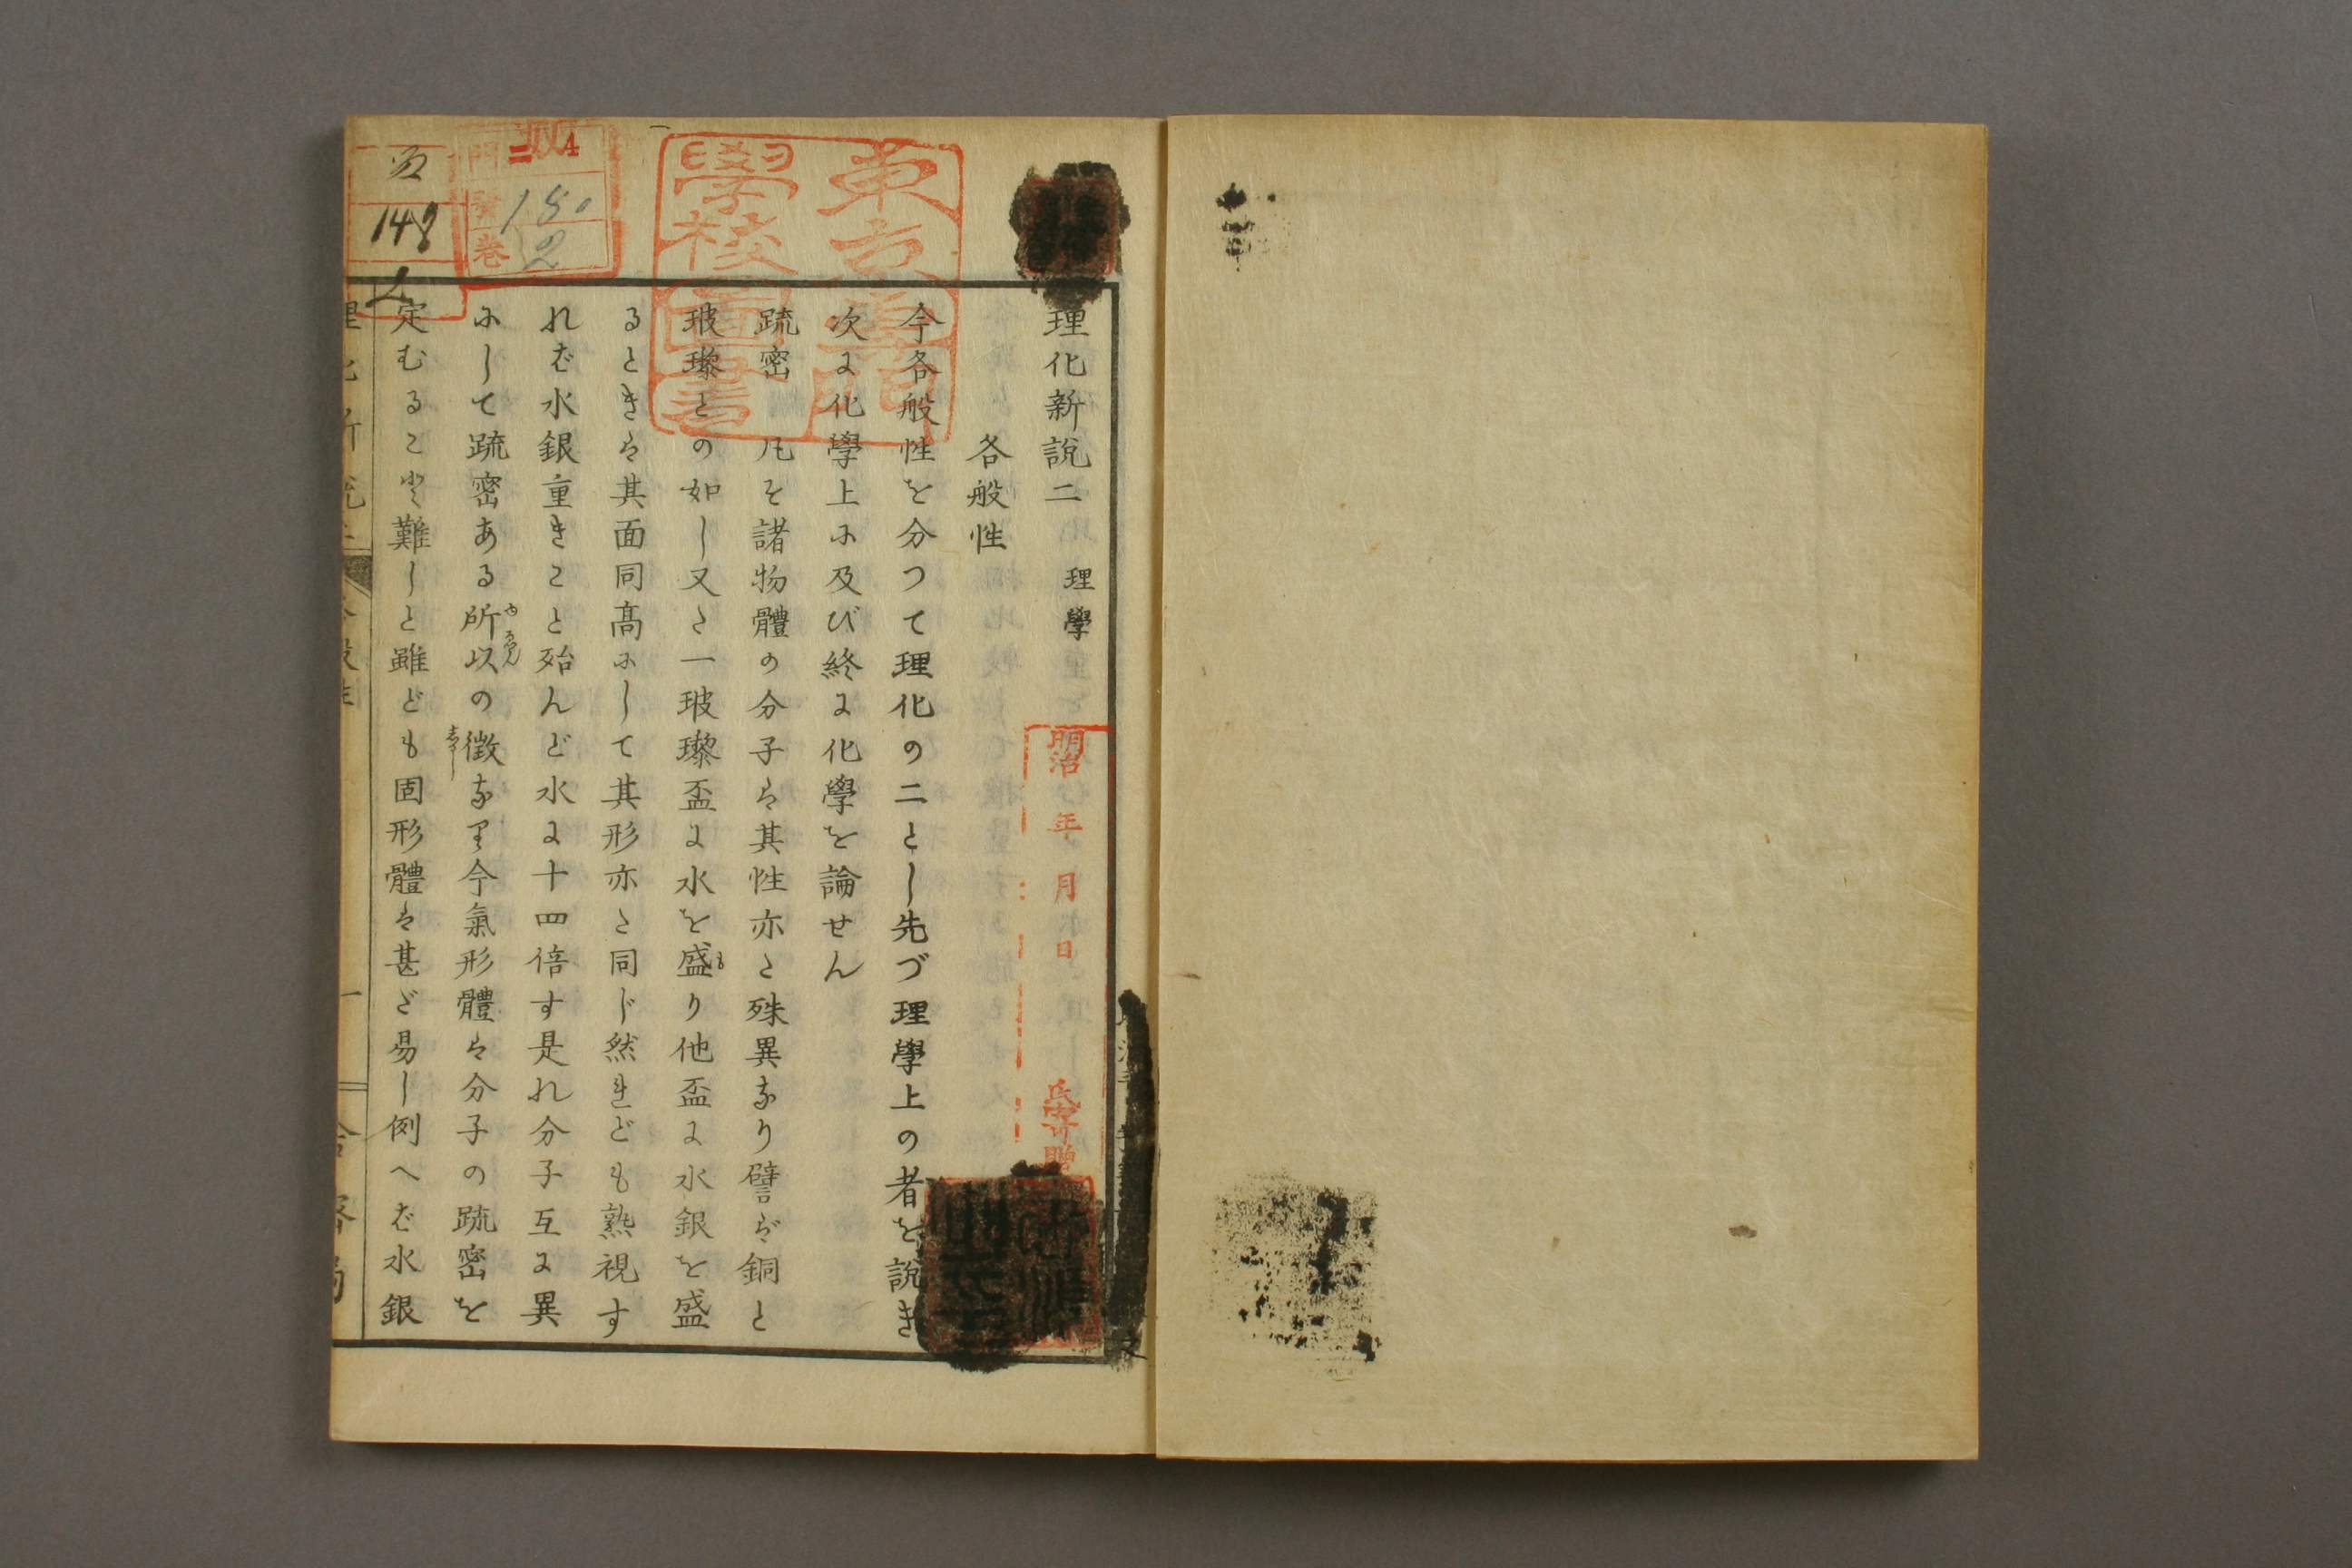 理化新說二 理學
各般性
今各般性を分つて理化の二とし先づ理學上の者を說き
次に化學上に及び終に化學を論せん
疏密 凡そ諸物體の分子は其性亦た殊異なり譬ば銅と
玻瓈との如し又た一玻瓈盃に水を盛り他盃に水銀を盛
も
るときは其面同高にして其形亦た同じ然れども熟視す
れば水銀重きこと殆んど水に十四倍す是れ分子互に異
にして疏密ある所以の徵なり今氣形體は分子の疏密を
ゆゑん
しるし
定むること難しと雖ども固形體は甚だ易し例へば水銀
東京專門
學校圖書
明治 年 月 日
氏寄贈
門
號
卷
180
2
148